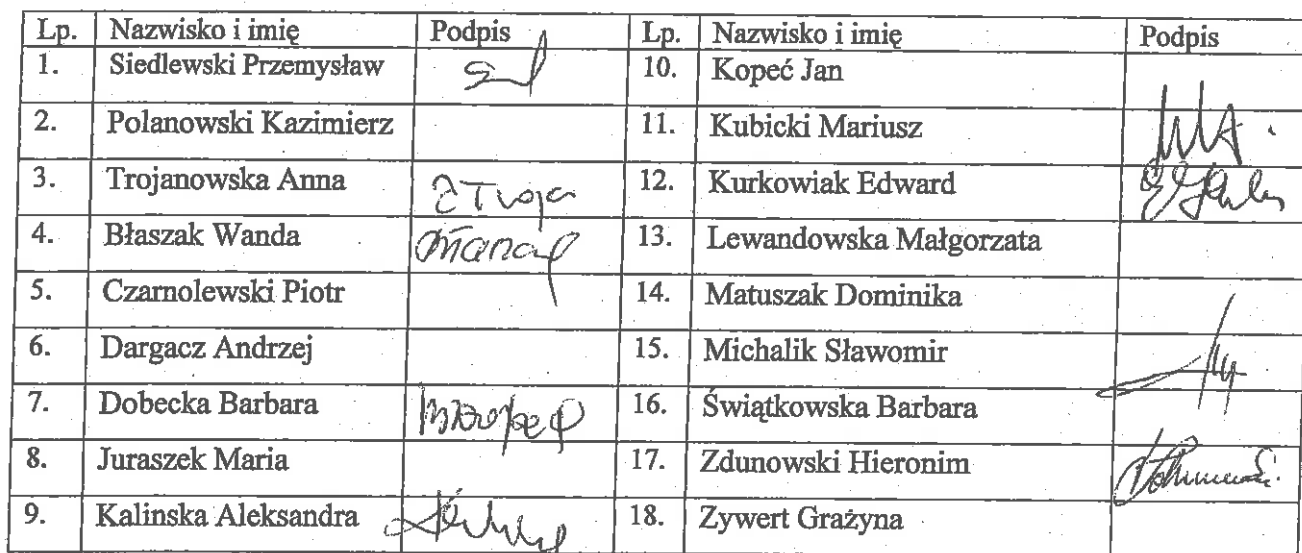 Lp. Nazwisko i imię Podpis Lp. Nazwisko i imię Podpis
1. Siedlewski Przemysław 10. Kopeć Jan
2. Polanowski Kazimierz 11. Kubicki Mariusz
3. Trojanowska Anna 12. Kurkowiak Edward
4. Błaszak Wanda 13. Lewandowska Małgorzata
5. Czarnolewski Piotr 14. Matuszak Dominika
6. Dargacz Andrzej 15. Michalik Sławomir
7. Dobecka Barbara 16. Świątkowska Barbara
8. Juraszek Maria 17. Zdunowski Hieronim
9. Kalinska Aleksandra 18. Zywert Grażyna